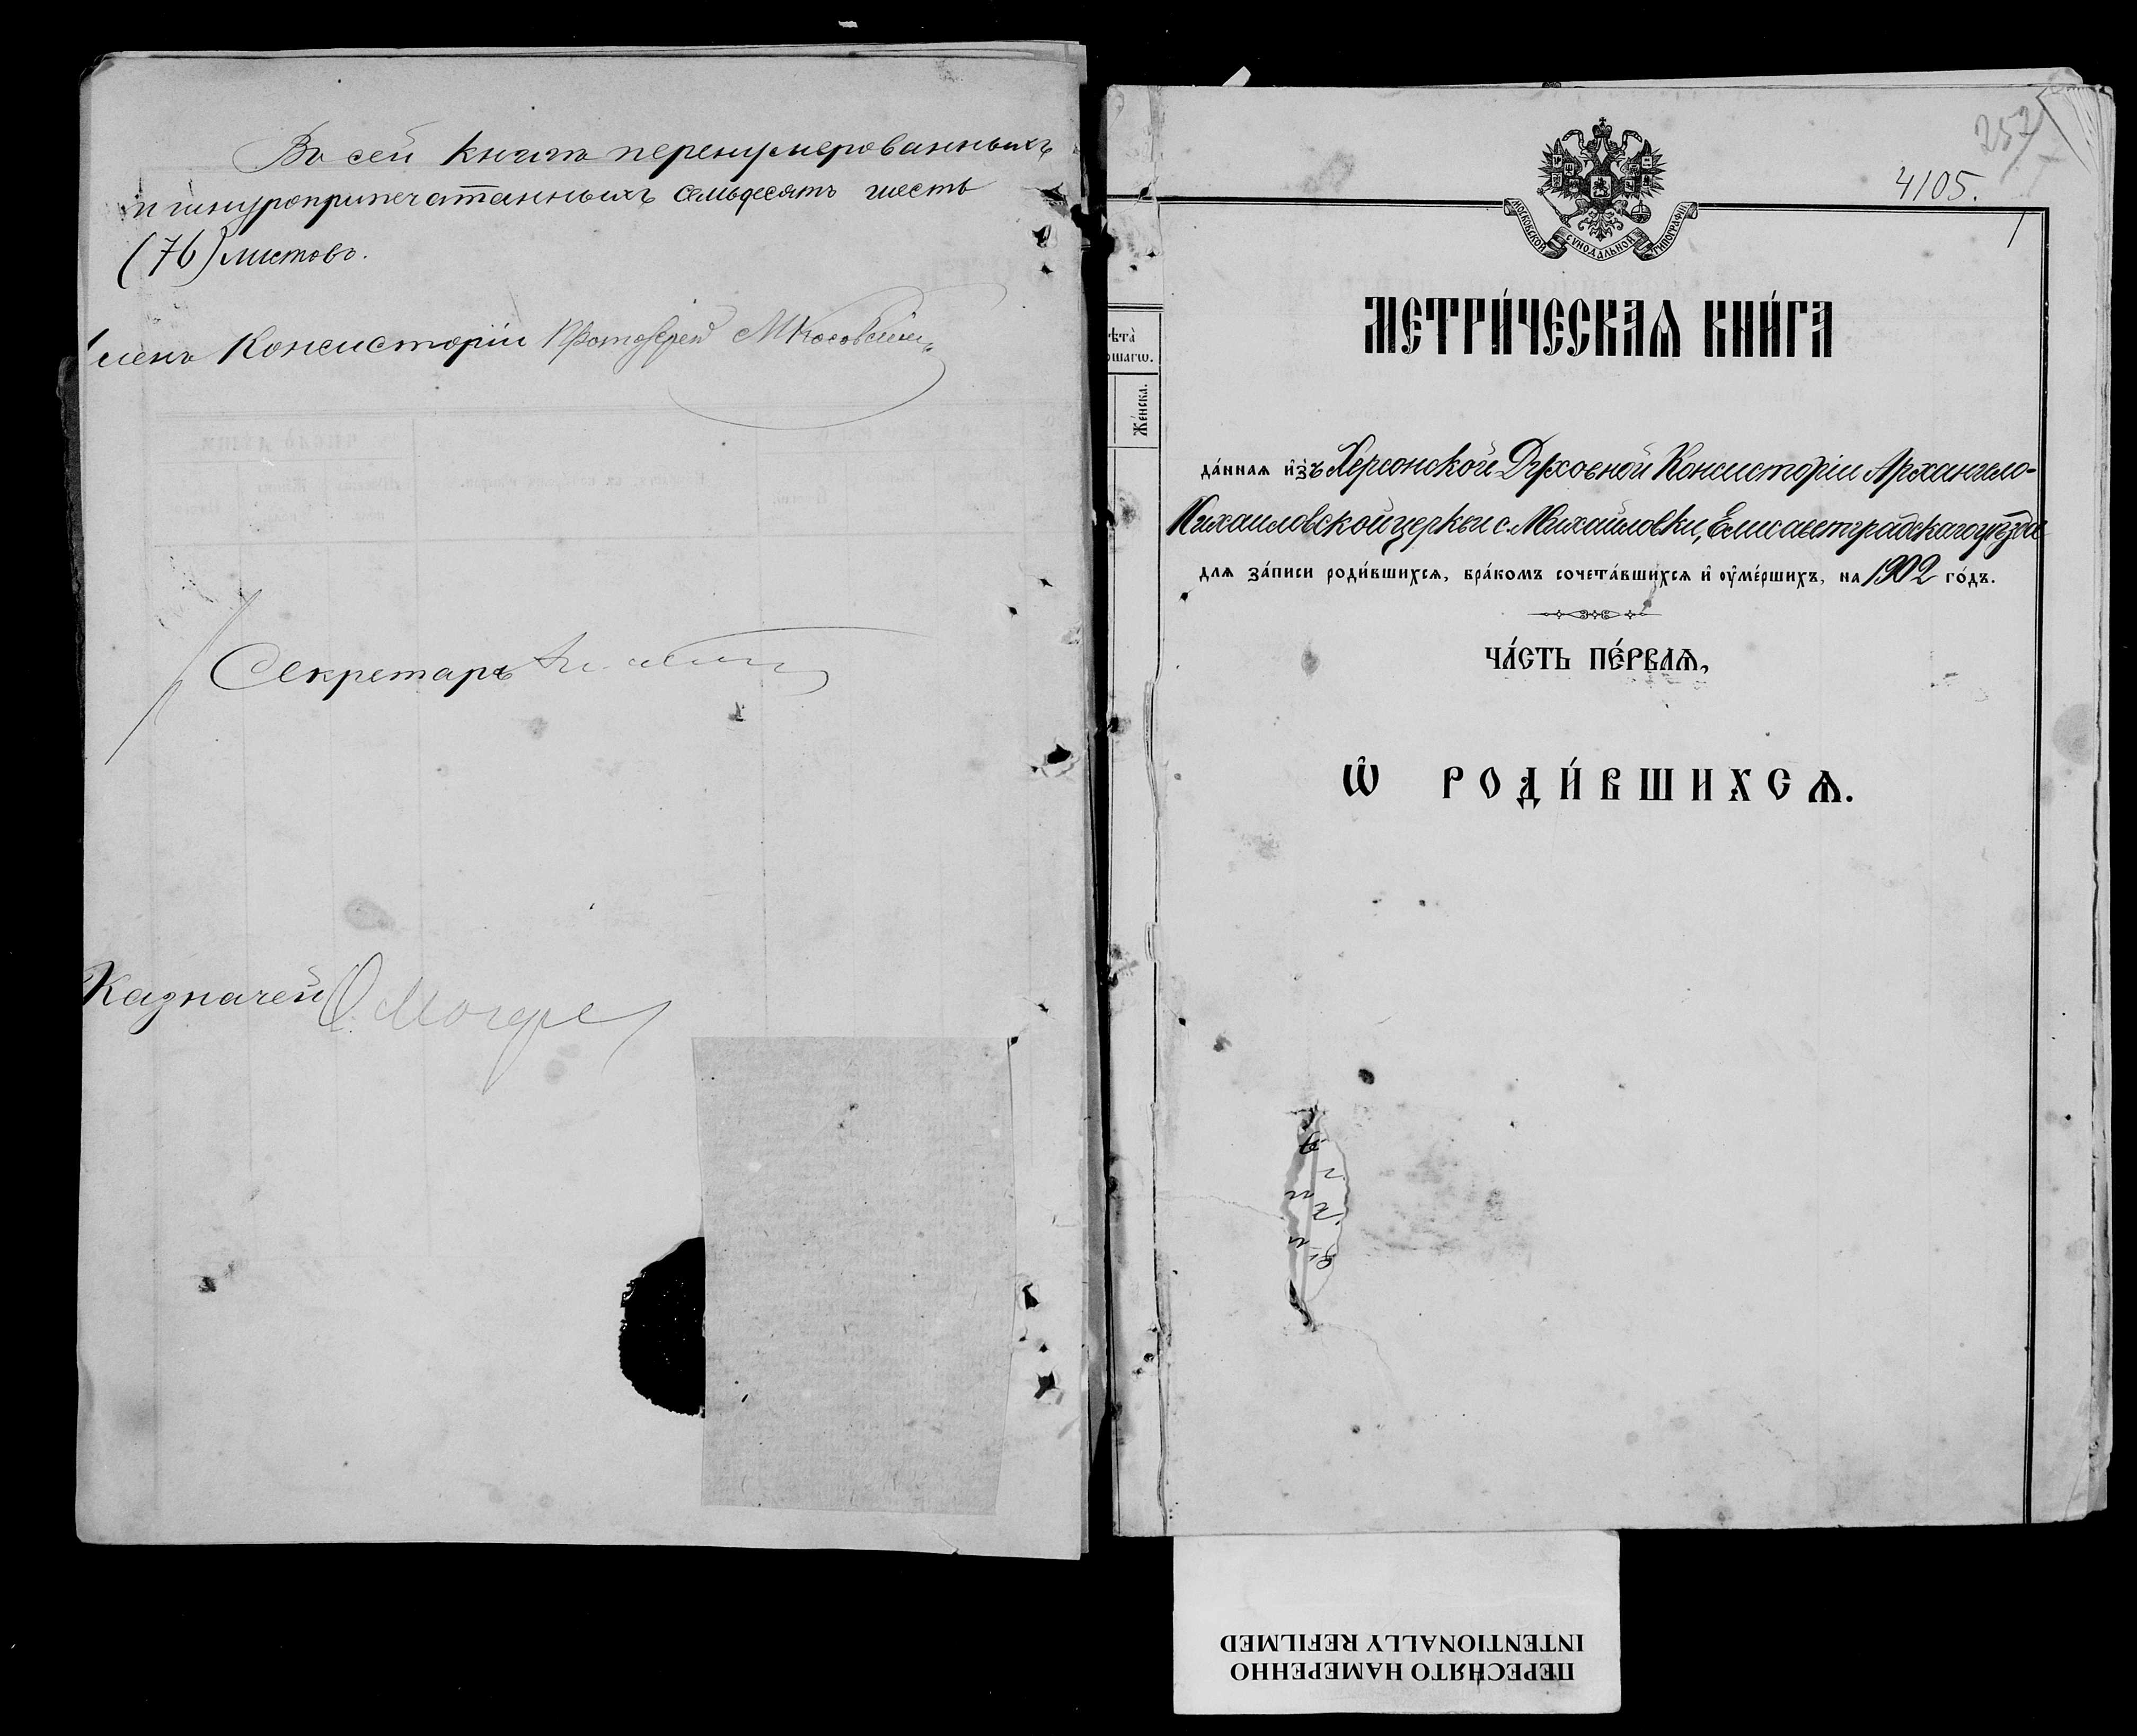 Въ сей книгѣ перенумерованныхъ
и шнуроприпечатанныхъ семьдесятъ шесть
(76) листовъ.
Членъ Консисторіи Протоіерей
Секретарь
Казначей
257
4105.
1
МОСКОВСКОЙ СѴНОДАЛЬНОЙ ТИПОГРАФІИ
МЕТРИ́ЧЕСКАѦ КНИ́ГА
да́нная и҆зъ Херсонской Духовной Консисторіи Архангело-
Михаиловской церкви с. Михайловки, Елисаветградскаго уѣзда
для за́писи роди́вшихся, бра́комъ сочета́вшихся и҆ ѹ҆ме́ршихъ, на 1902 го́дъ.
ЧА́СТЬ ПЕ́РВАѦ,
Ѡ҆ РОДИ́ВШИХСѦ.
ѣта̀
шагѡ.
Же́нска.
ПЕРЕСНЯТО НАМЕРЕННО
INTENTIONALLY REFILMED